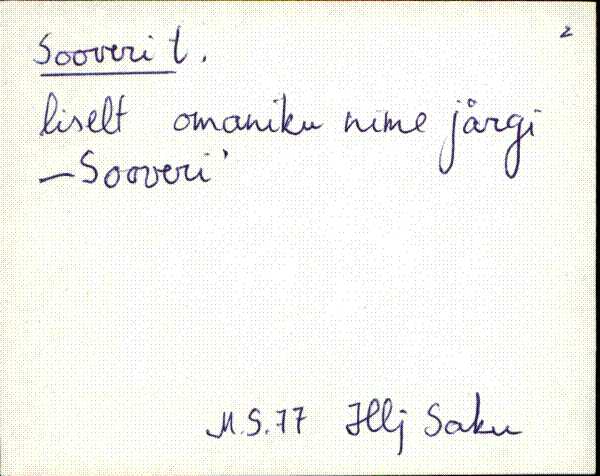 2
Sooveri t.
liselt omaniku nime järgi
— Sooveri'
M.S.77 Jllj Saku